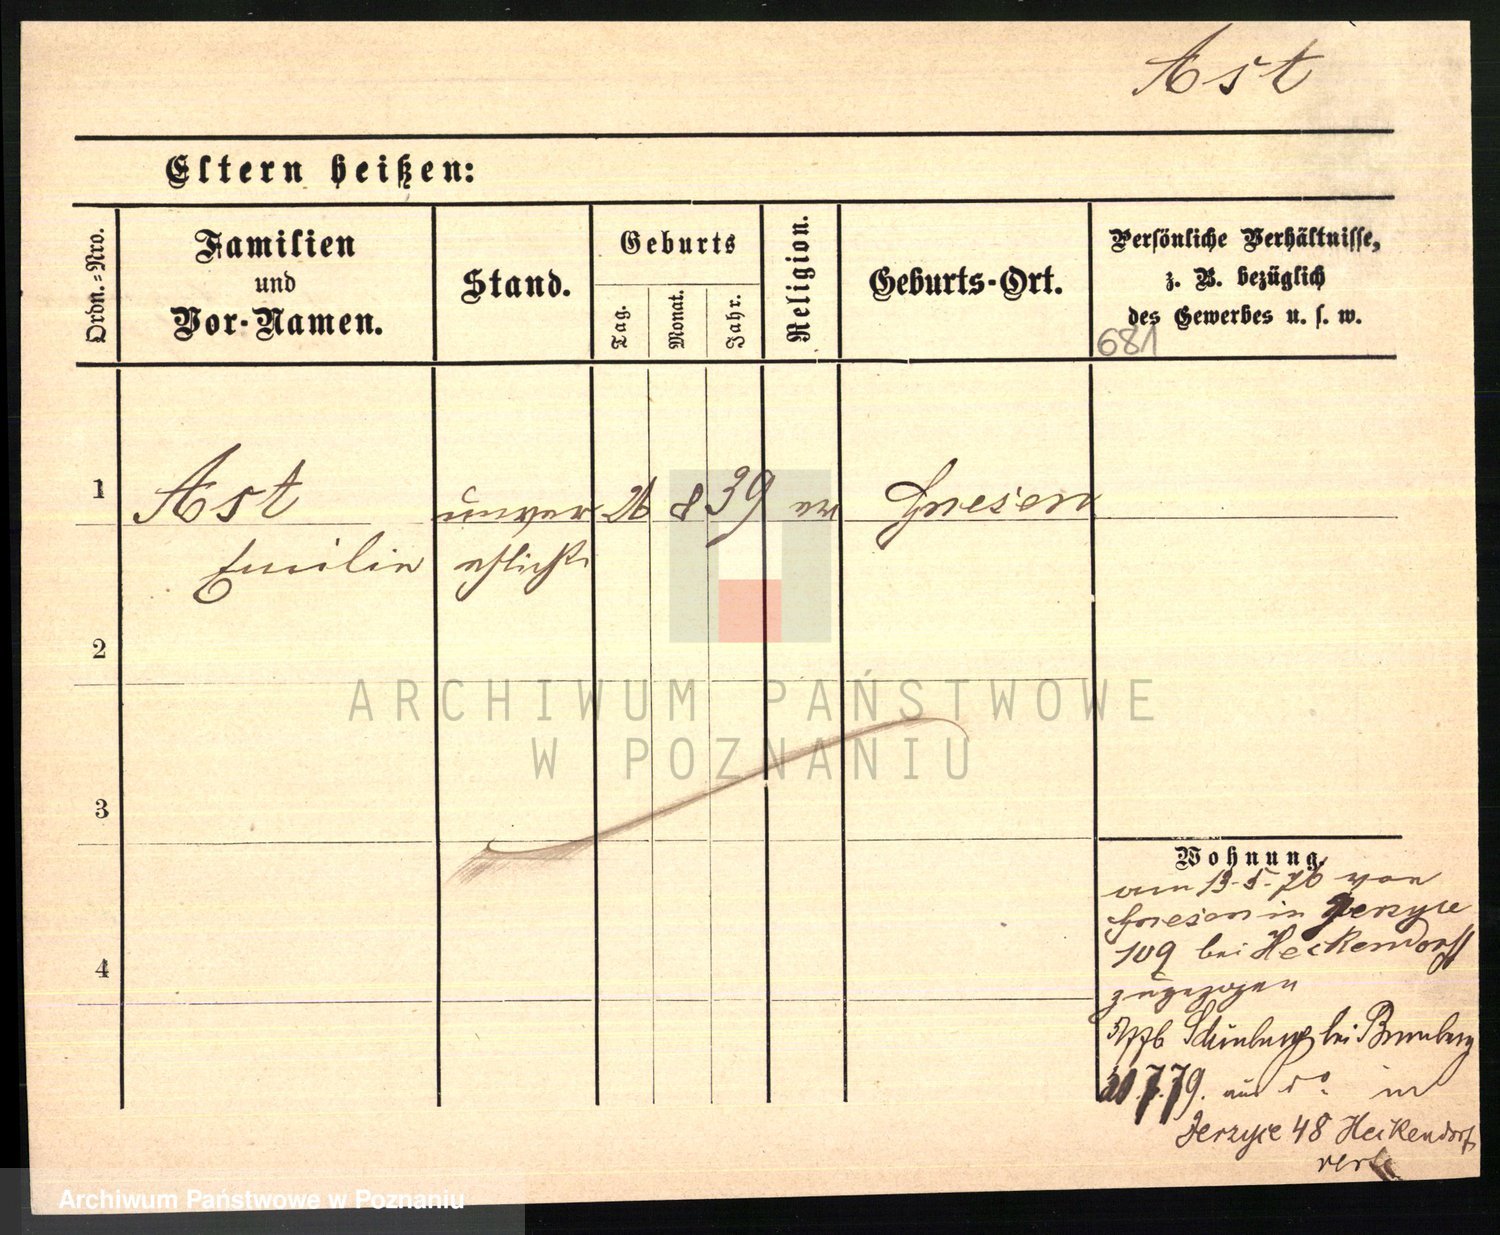 Ast
Eltern heißen:
Ordn.-Nro.
Familien
und
Vor-Namen.
Stand.
Geburts
Tag.
Monat.
Jahr.
Religion.
Geburts-Ort.
Persönliche Verhältnisse,
z. B. bezüglich
des Gewerbes u. s. w.
681
1
Ast
unver
26
8
39
ev
Gnesen
Emilie
ehlicht
2
ARCHIWUM PAŃSTWOWE
W POZNANIU
3
Wohnung.
am 13-5-76 von
Gnesen in Jerzyce
109 bei Heckendorff
4
zugezogen
bei Bromberg
20.7.79. aus in
Jerzyce 48 Heckendorf
Archiwum Państwowe w Poznaniu